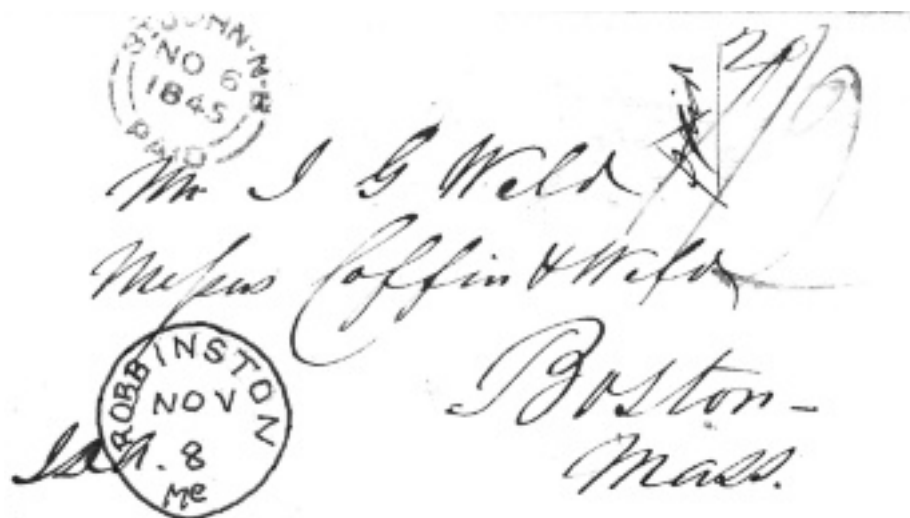 ST. JOHN. N.B.
NO 6
1845
PAID
Mr I G Weld
Messrs Coffin & Weld
Boston-
Mass.
ROBBINSTON
NOV
8
Me